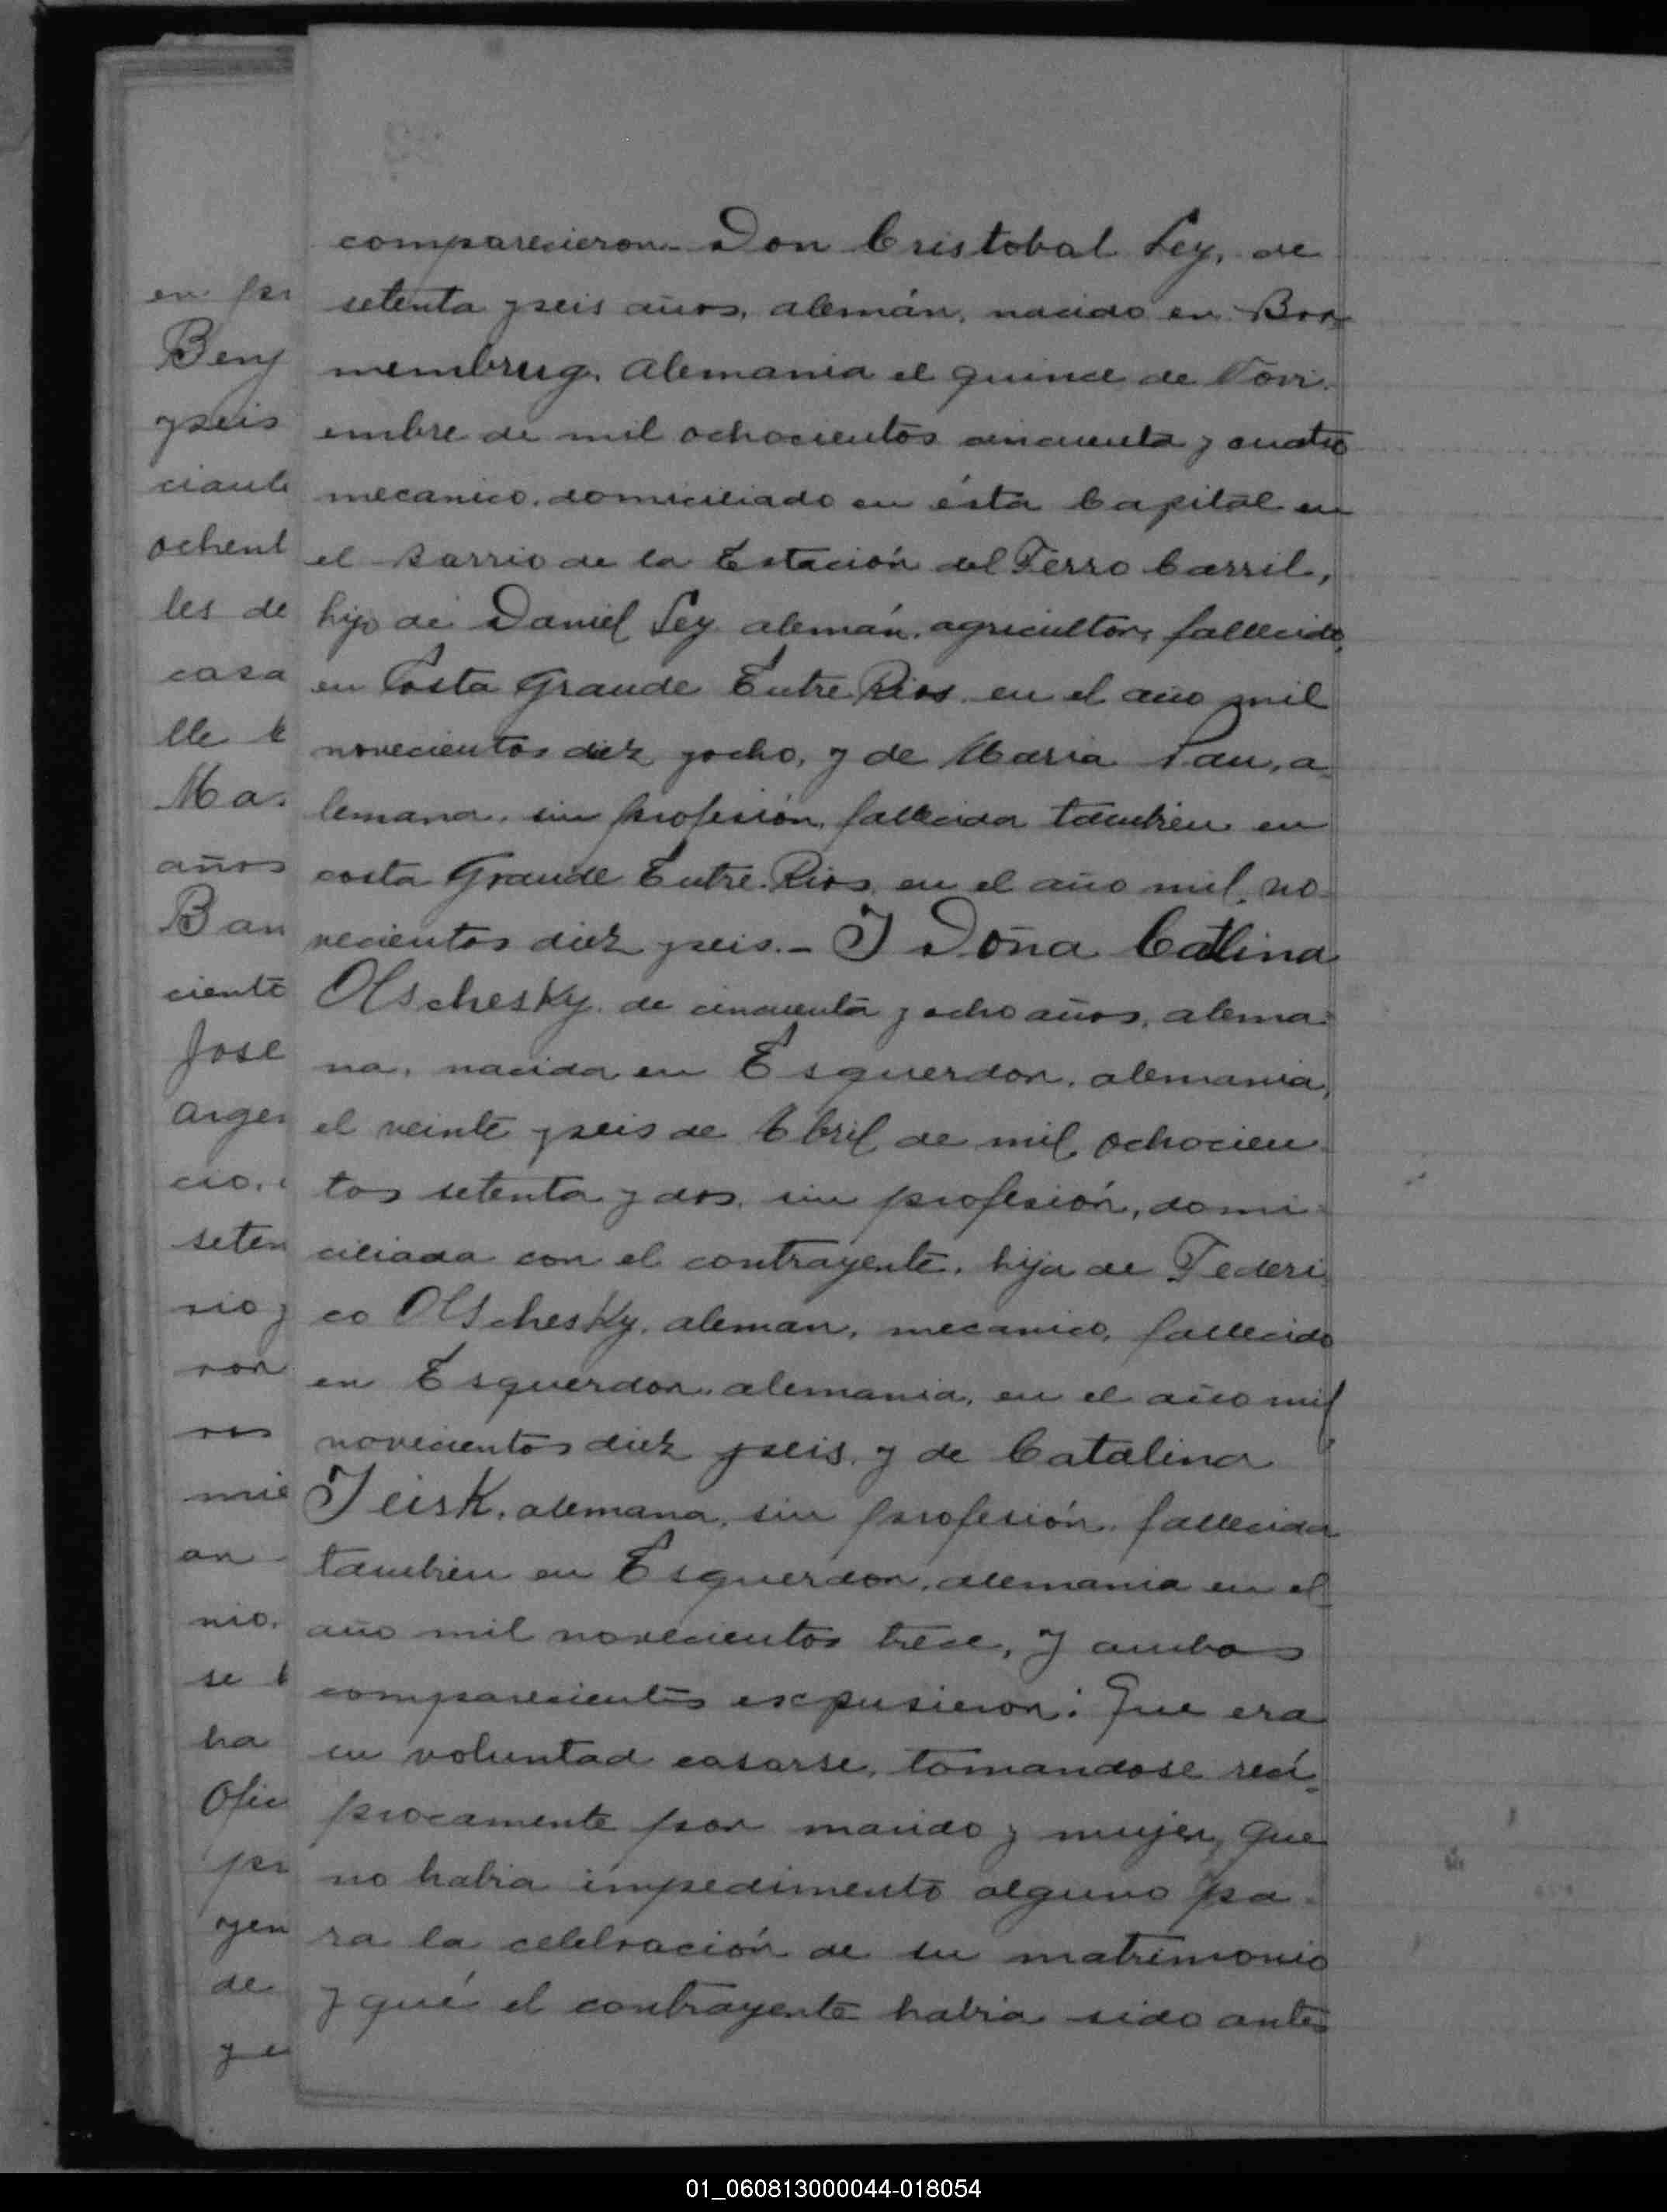 comparecieron- Don Cristobal Ley, de
setenta y seis años, alemán, nacido en Bor-
membrug, Alemania el quince de Novi-
embre de mil ochocientos cincuenta y cuatro
mecanico, domiciliado en ésta Capital en
el Barrio de la Estación del Ferro Carril,
hijo de Daniel Ley alemán, agricultor, fallecido,
en Costa Grande Entre Rios en el año mil
novecientos diez y ocho, y de Maria Pau, a-
lemana, sin profesión, fallecida tambien en
costa Grande Entre Rios, en el año mil no-
vecientos diez y seis.- Y Doña Catlina
Olschesky, de cincuenta y ocho años, alema-
na, nacida en Esguerdon, alemania,
el veinte y seis de Abril de mil ochocien-
tos setenta y dos, sin profesión, domi-
ciliada con el contrayente, hija de Federi-
co Olschesky, aleman, mecanico, fallecido
en Esguerdon, alemania, en el año mil
novecientos diez y seis, y de Catalina
Teisk, alemana, sin profesión, fallecida
tambien en Esguerdon, alemania en el
año mil novecientos trece, y ambos
comparecientes expusieron: Que era
su voluntad casarse, tomandose recí-
procamente por marido y mujer, que
no habia impedimento alguno pa-
ra la celebración de su matrimonio
y qué el contrayente habia sido antes
en pr
Benj
y seis
ciante
ochent
les de
casa
lle
Ma
años
Ban
ciento
Jose
argen
cio,
seten
rio y
ron
res
mie
an
nio.
se
ha
Ofic
pr
yen
de
y e
01_060813000044-018054